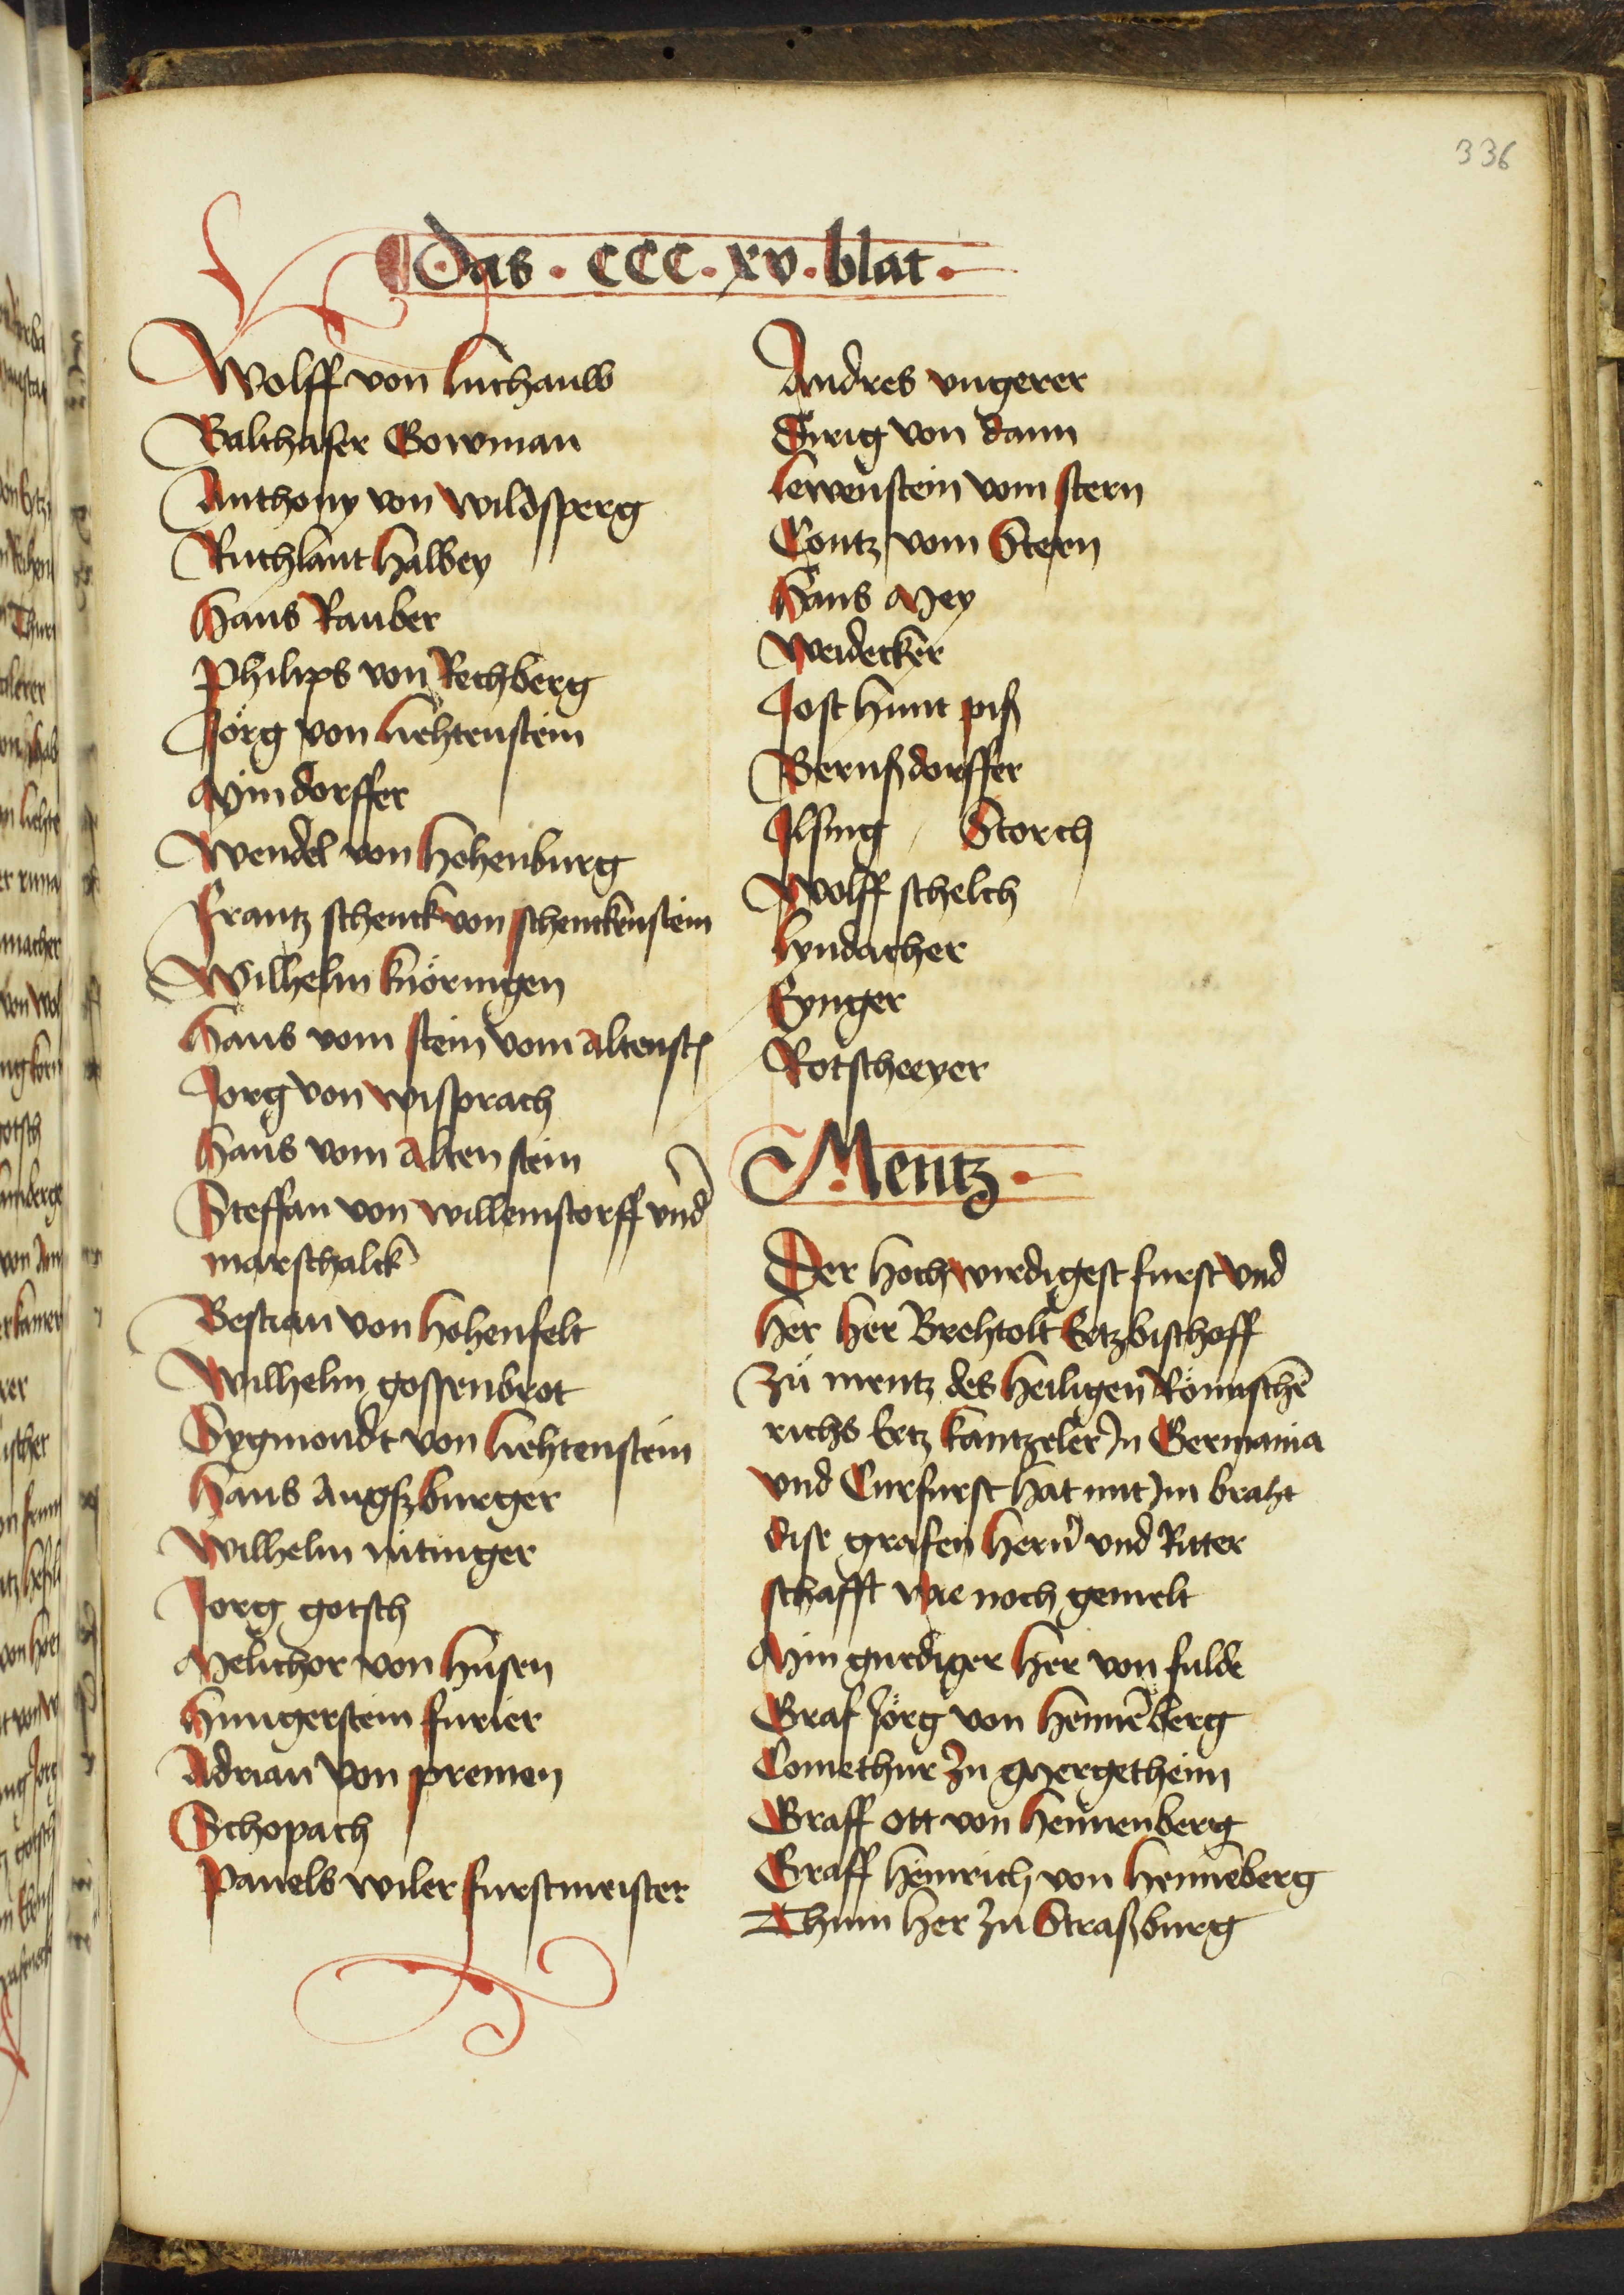 336
Das · CCC · xv · blat ·
Wolff von Luchauw
Balthaser Gowman
Anthony von Wildsperg
Ruthlant Halbey
Hans Rauber
Philips von Rechberg
Jörg von Liehtenstein
Mindorffer
Wendel von Hohenburg
Frantz schenck von schenckenstein
Wilhelm knöringen
Hans vom stein vom Altenst
Jorg von wisprach
Hans vom Alten stein
Steffan von willemstorff vnd
marschalck
Bestian von Hohenfelt
Wilhelm gossenbrot
Sygmondt von Liehtenstein
Hans Augsburger
Wilhelm nitinger
Jorg gotsch
Melichor von Husen
Hungerstein furier
Adrian von premen
Schopach
Panels wiler furstmeister
Andres vngerer
Tirig von dann
Lewenstein vom stern
Contz vom Stern
Hans Mey
Weidecker
Jost Hunt piß
Bernßdorffer
Ilsing / Storch
Wolff schelch
Lyndacher
Eynger
Rotscheeyer
Mentz ·
Der Hochwirdigest furst vnd
Her Her Brehtolt Ertzbischoff
zü mentz des Heiligen Römischē
richs Ertz kantzeler Jn Germania
vnd Curfurst Hat mit Jm braht
dise grafen Hern vnd Ritter
schafft wie noch gemelt
Min gnediger Her von fulde
Graf Jörg von Hennēberg
Comethur zu Mergetheim
Graff ott von Hennenberg
Graff Heinrich von Hennēberg
Thum Her zu Straßburg